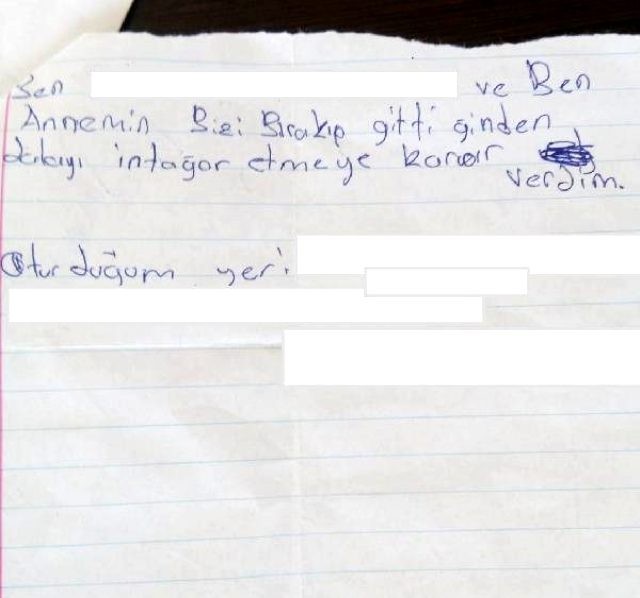 Ben
ve Ben
Annemin Bizi Bırakıp gitti ğinden
dolayı intağar etmeye karar
verdim.
Oturduğum yer: